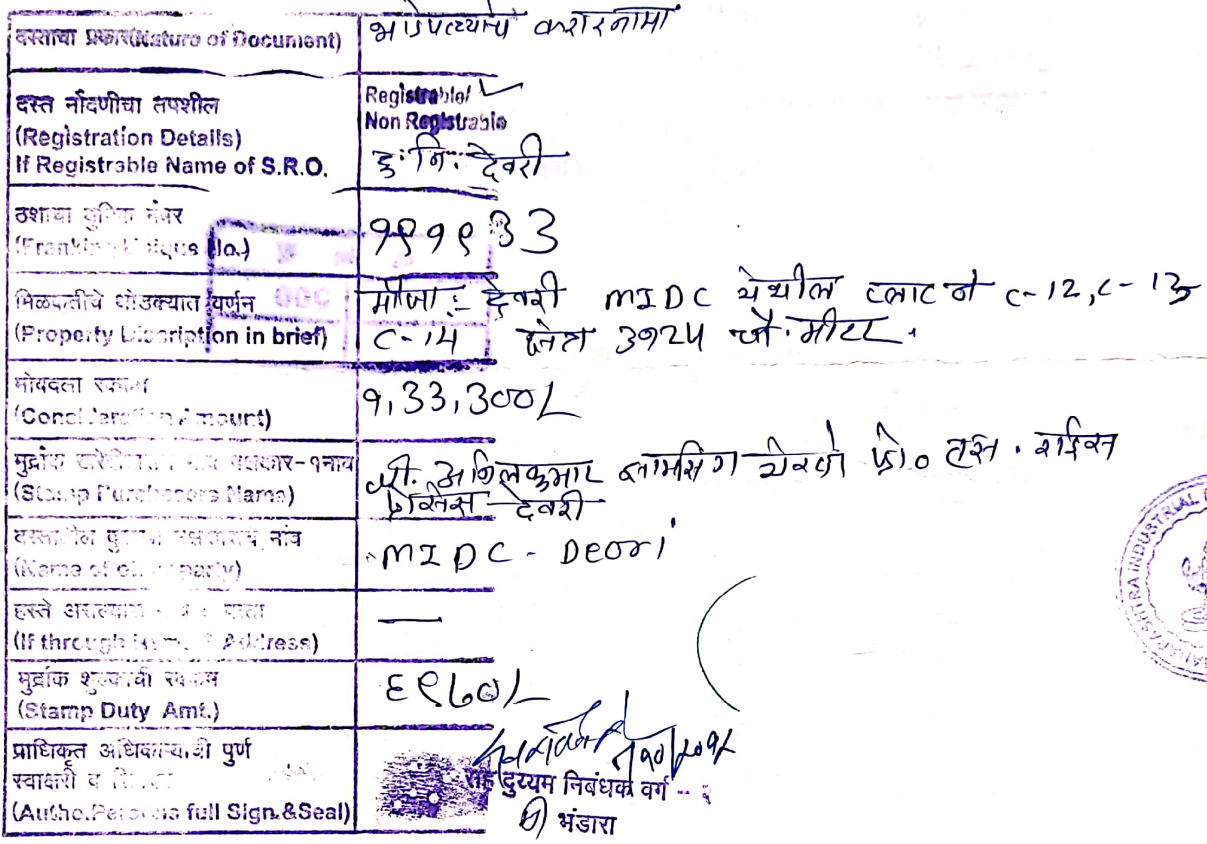 दस्ताचा प्रकार(Nature of Document) भाडेपट्ट्याचे करारनामा
दस्त नोंदणीचा तपशील
(Registration Details)
If Registrable Name of S.R.O.
Registrable/ ✓
Non Registrable
दु. नि. देवरी
नंबर
(Franking Unique No.) १९१९33
मिळकतीचे थोडक्यात वर्णन
(Property Discription in brief)
मौजा :- देवरी MIDC येथील प्लाट नं C-12, C-13
C-14 क्षेत्र 3१२५ चौ. मीटर.
मोबदला रक्कम
(Consideration Amount) १,33,300/-
मुद्रांक
(Stamp Purchasers Name)
श्री. अनिलकुमार येरणे प्रो० राईस
प्रोसेस देवरी
नांव
(Name of other party) MIDC - Deori
हस्ते असल्यास
(If through Address) —
मुद्रांक शुल्काची रक्कम
(Stamp Duty Amt.) ६९७0/-
प्राधिकृत अधिकाऱ्याची पुर्ण
स्वाक्षरी व
(Autho.Persons full Sign.&Seal)
सह दुय्यम निबंधक वर्ग -
भंडारा